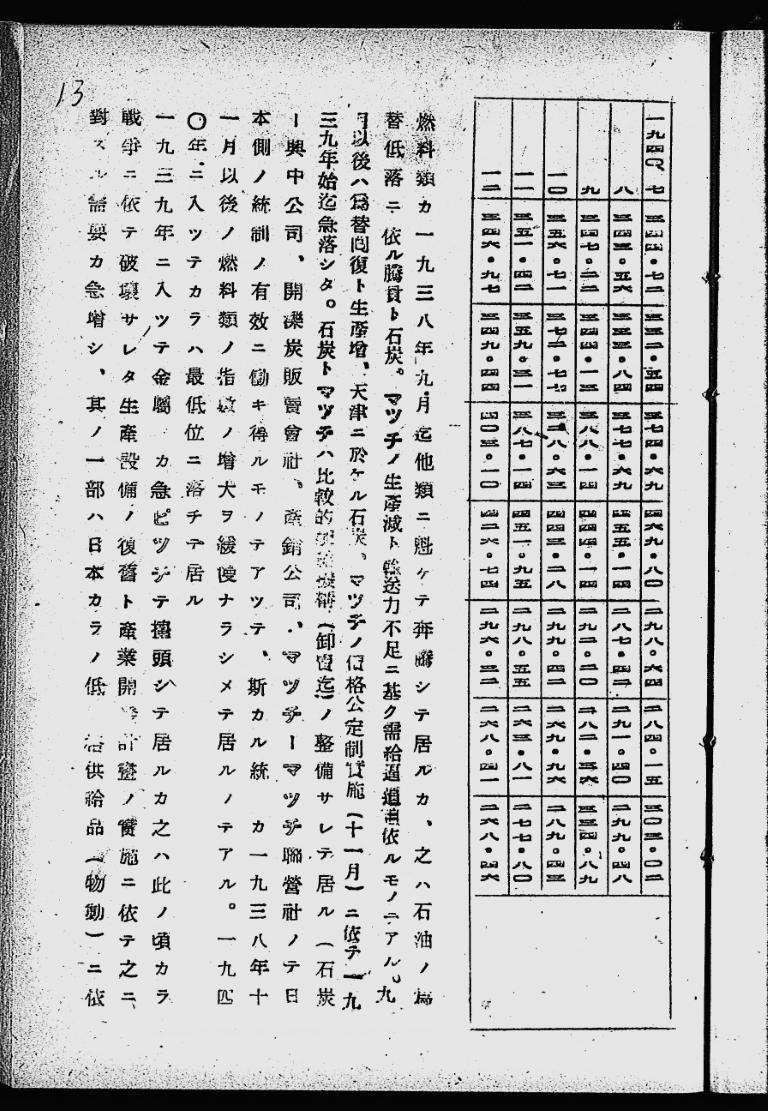 一九四〇・七 三四四・七二 三三二・五四 三七四・六九 四六九・八〇 二九八・六四 二八四・一五 三〇三・〇二
八 三四三・五六 三三三・八四 三七七・六九 四五五・一四 二八七・四二 二九一・四〇 二九九・四八
九 三四七・二二 三四四・一三 三八八・一四 四四四・一四 二九二・二〇 二八二・三六 三三四・八九
一〇 三五六・七一 三七二・七七 三二八・六三 四四三・二八 二九九・四二 二六九・九六 二八九・四三
一一 三五一・四二 三五九・三一 三八七・一四 四五一・九五 二九八・五五 二六三・八一 二七七・八〇
一二 三四六・九七 三四九・四四 四〇三・一〇 四二六・七四 二九六・三二 二六八・四一 二六八・四六
燃料類カ一九三八年九月迄他類ニ魁ケテ奔騰シテ居ルカ、之ハ石油ノ為
替低落ニ依ル騰貴ト石炭。マツチノ生産減ト輸送力不足ニ基ク需給逼迫依ルモノテアル。九
月以後ハ為替囘復ト生産増、天津ニ於ケル石炭、マツチノ価格公定制実施(十一月)ニ依テ一九
三九年始迄急落シタ。石炭トマツチハ比較的機構(卸賣迄)ノ整備サレテ居ル(石炭
ー興中公司、開灤炭販賣會社、産銷公司、マツチーマツチ聯營社ノテ日
本側ノ統制ノ有效ニ働キ得ルモノテアツテ、斯カル統カ一九三八年十
一月以後ノ燃料類ノ指数ノ増大ヲ緩慢ナラシメテ居ルノテアル。一九四
〇年ニ入ツテカラハ最低位ニ落チテ居ル
一九三九年ニ入ツテ金屬カ急ピツチテ擡頭シテ居ルカ之ハ此ノ頃カラ
戦争ニ依テ破壊サレタ生産設備ノ復舊ト産業開計畫ノ實施ニ依テ之ニ
對スル需要カ急増シ、其ノ一部ハ日本カラノ低供給品(物動)ニ依
13